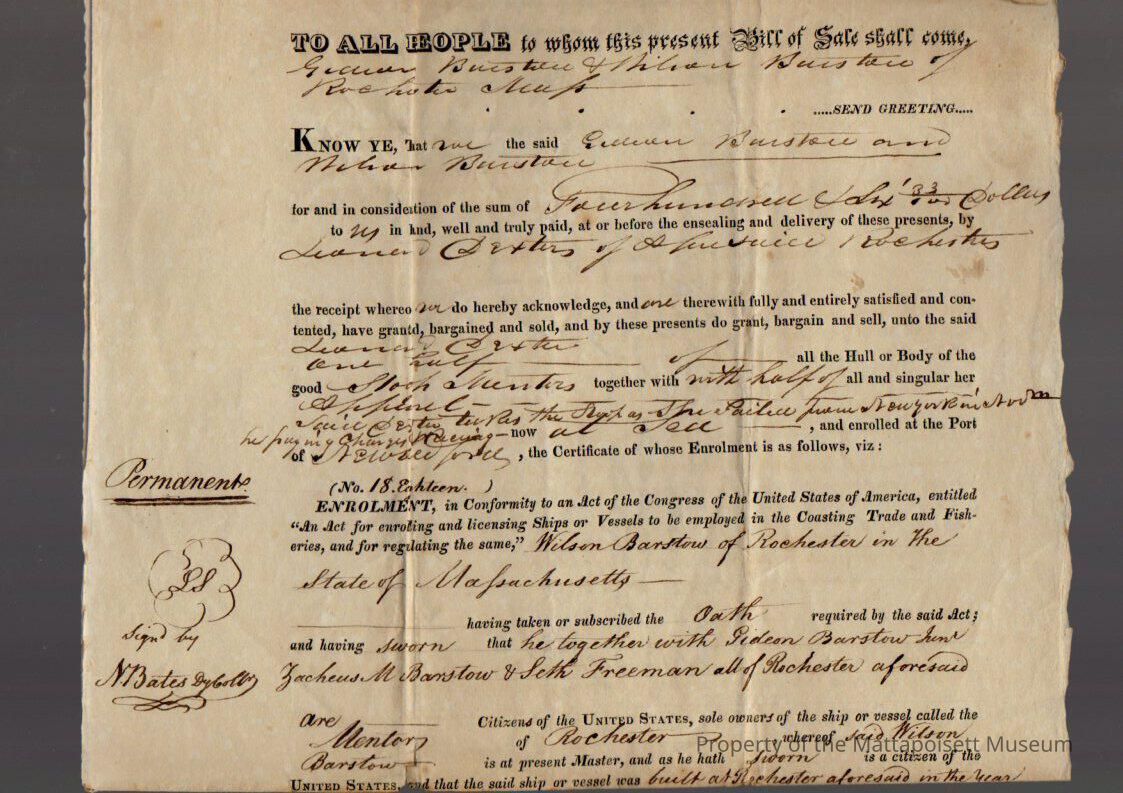 TO ALL PEOPLE to whom this present Bill of Sale shall come,
Gideon Barstow & Wilson Barstow of
Rochester Mass
.....SEND GREETING.....
KNOW YE, That we the said Gideon Barstow and
Wilson Barstow
for and in consideration of the sum of Four hundred & Six 33/100 Dollars
to us in hand, well and truly paid, at or before the ensealing and delivery of these presents, by
Leonard Dexter of Aforesaid Rochester
the receipt whereof we do hereby acknowledge, and are therewith fully and entirely satisfied and con-
tented, have granted, bargained and sold, and by these presents do grant, bargain and sell, unto the said
Leonard Dexter
one half of all the Hull or Body of the
good Sloop Mentor together with with half of all and singular her
Said Dexter takes the Sloop as She Sailed from New York in
he paying Charges now at Sea , and enrolled at the Port
of Newbedford , the Certificate of whose Enrolment is as follows, viz :
Permanent.
(No. 18. Eighteen. )
ENROLMENT, in Conformity to an Act of the Congress of the United States of America, entitled
“An Act for enroling and licensing Ships or Vessels to be employed in the Coasting Trade and Fish-
eries, and for regulating the same,” Wilson Barstow of Rochester in the
State of Massachusetts
LS
having taken or subscribed the Oath required by the said Act ;
Signd by
and having sworn that he together with Gideon Barstow Junr
N Bates Dy Collr
Zacheus M Barstow & Seth Freeman all of Rochester aforesaid
are Citizens of the UNITED STATES, sole owners of the ship or vessel called the
Mentor of Rochester , whereof said Wilson
Barstow is at present Master, and as he hath sworn is a citizen of the
UNITED STATES, and that the said ship or vessel was built at Rochester aforesaid in the year
Property of the Mattapoisett Museum